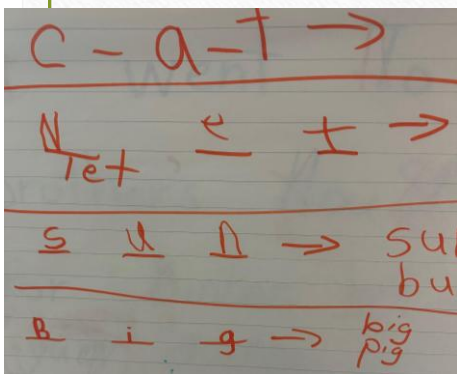 C - a - t →
N e t →
Tet
s u n →
B i g → big
pig